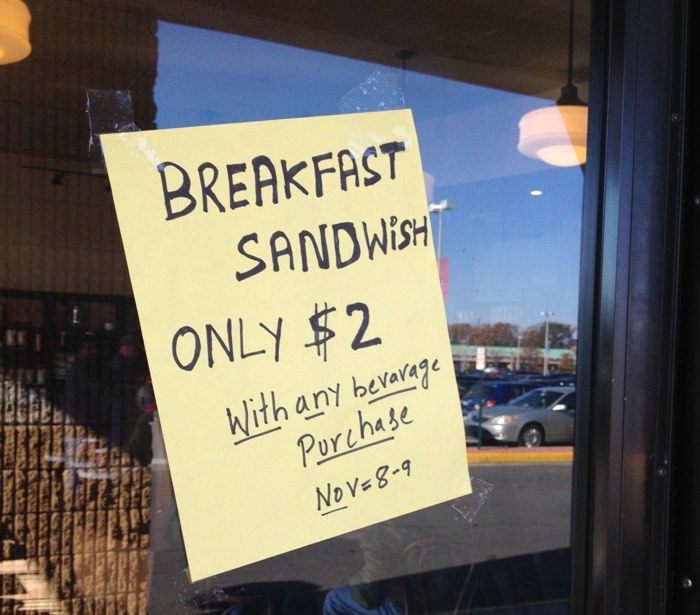 BREAKFAST
SANDWiSH
ONLY $2
With any bevarage
Purchase
Nov=8-9